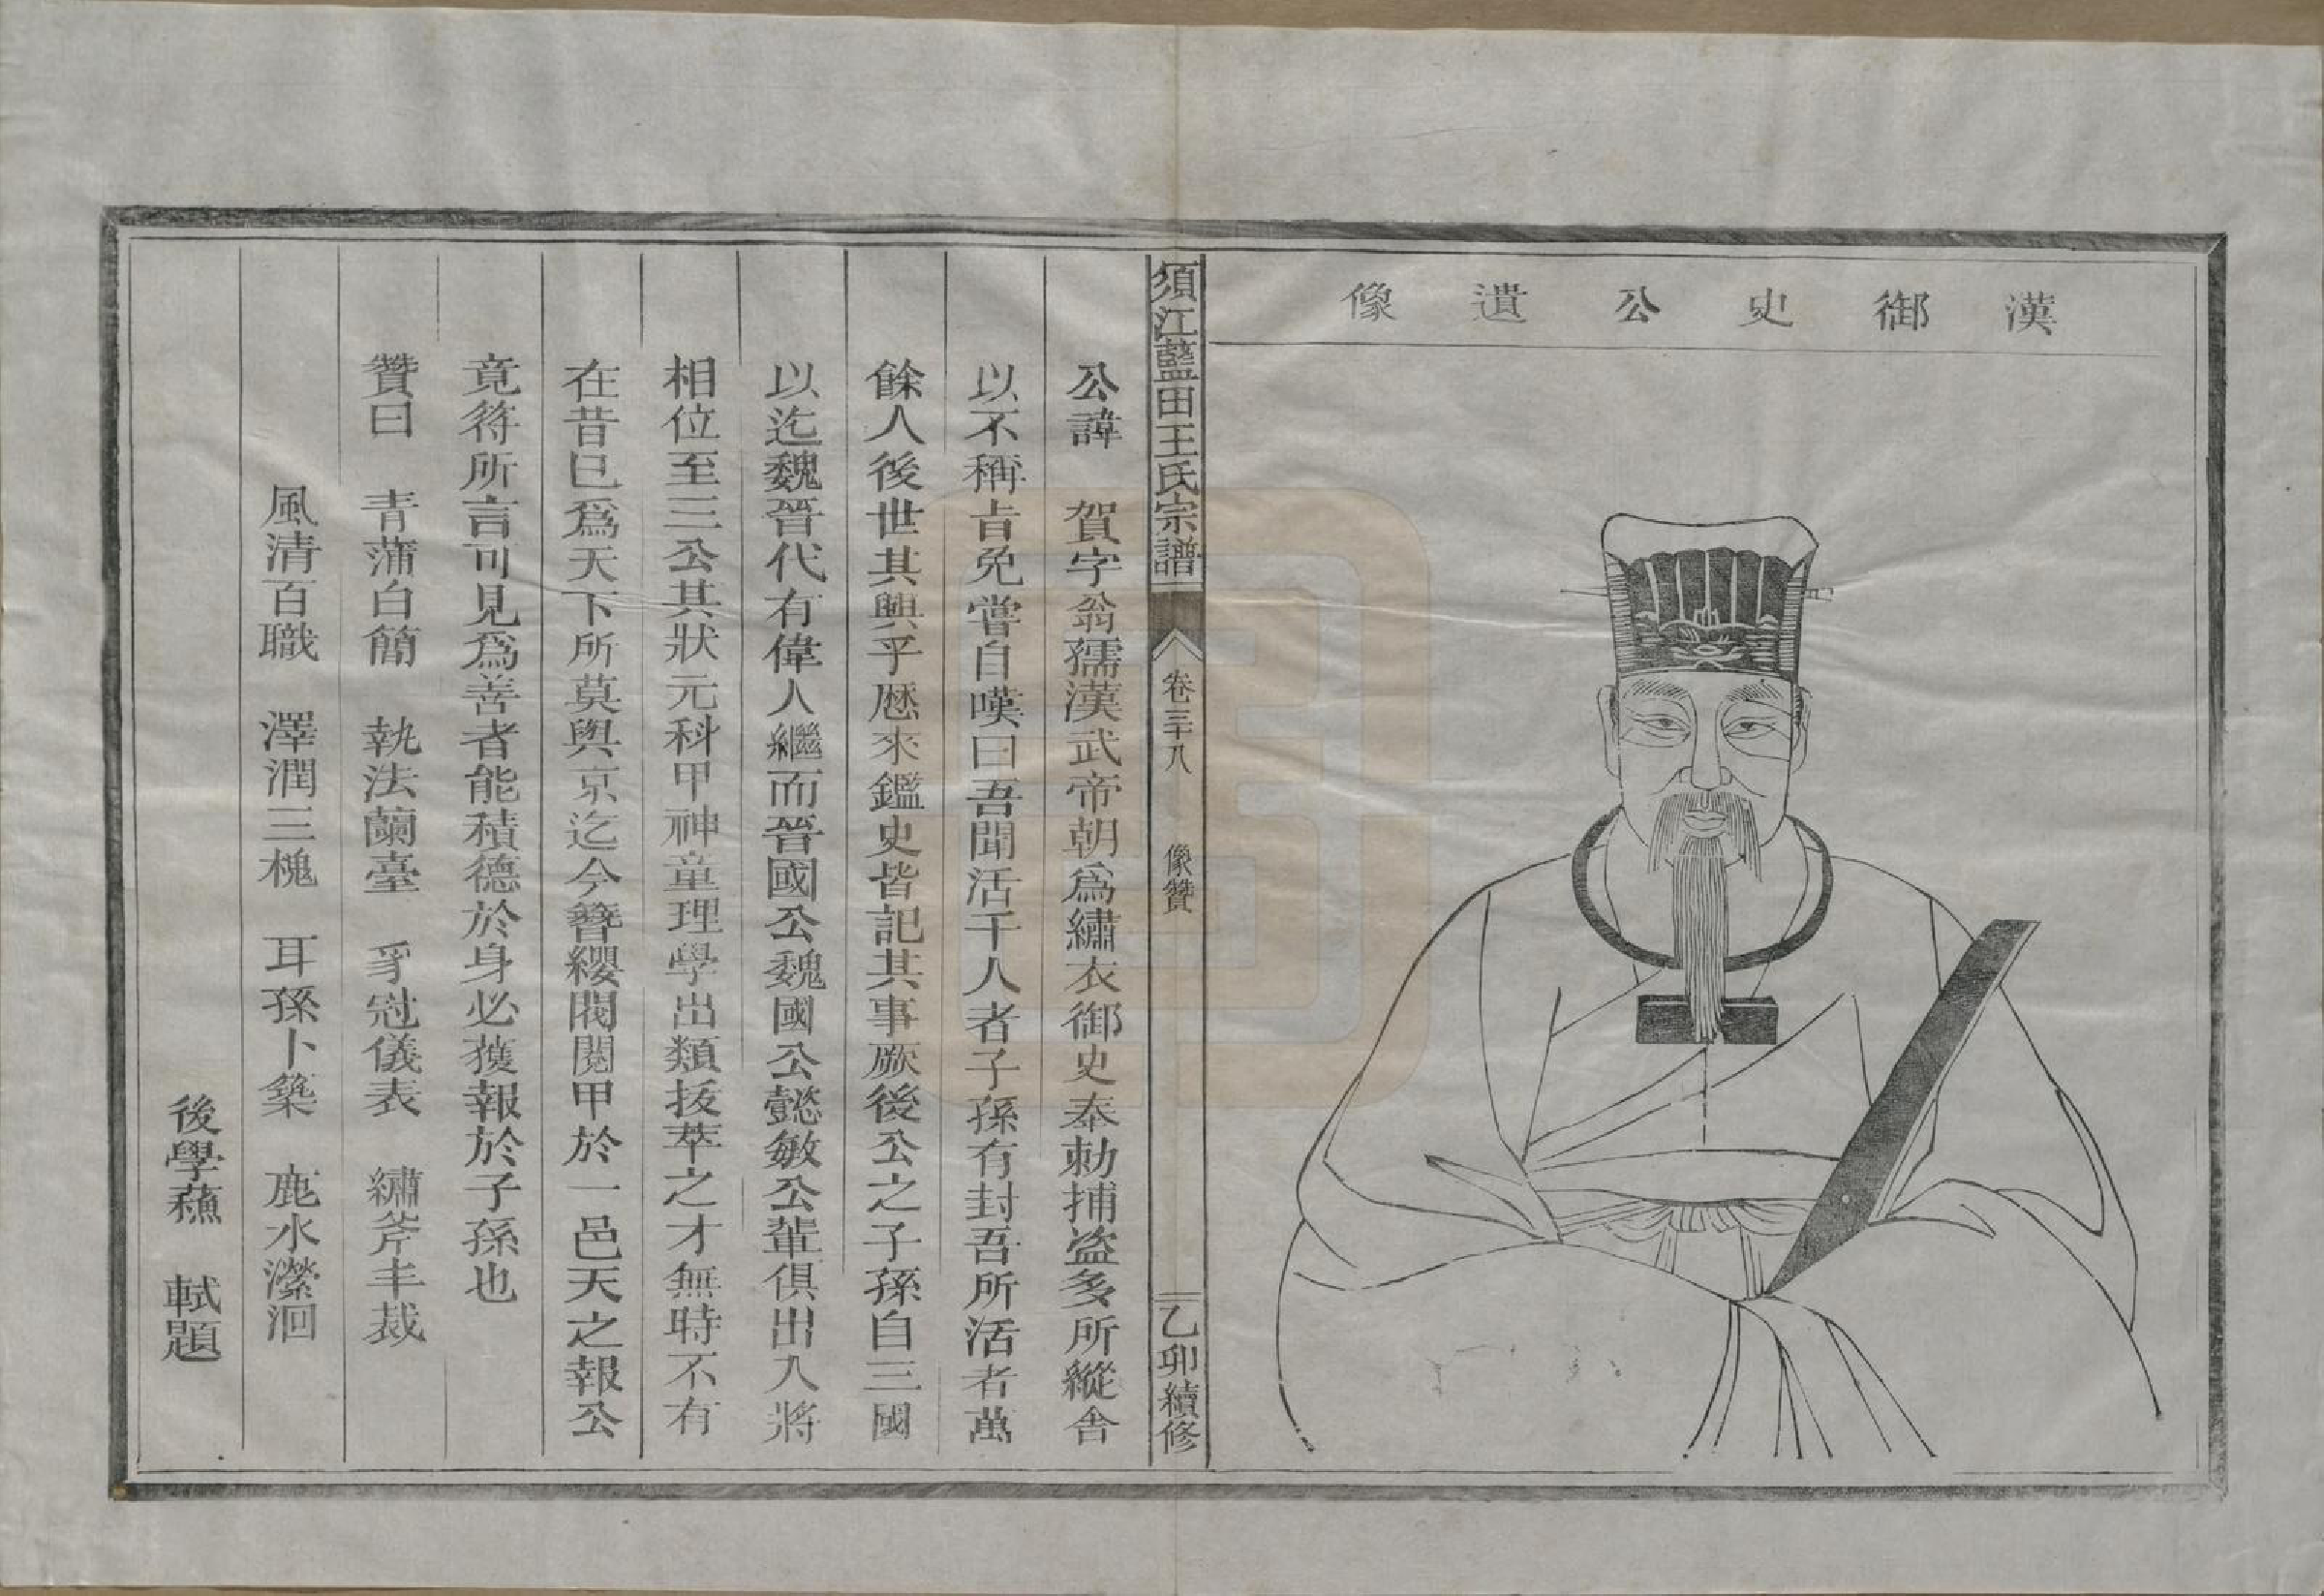 漢御史公遺像
須江藍田王氏宗譜 卷三十八 像贊 乙卯續修
公諱 賀字翁孺漢武帝朝爲繡衣御史奉勅捕盗多所縱舍
以不稱旨免嘗自嘆曰吾聞活千人者子孫有封吾所活者萬
餘人後世其興乎歷來鑑史皆記其事厥後公之子孫自三國
以迄魏晉代有偉人繼而晉國公魏國公懿敏公輩俱出入將
相位至三公其狀元科甲神童理學出類拔萃之才無時不有
在昔已爲天下所莫與京迄今簪纓閥閱甲於一邑天之報公
竟符所言可見爲善者能積德於身必獲報於子孫也
贊曰 青蒲白簡 執法蘭臺 豸冠儀表 繡斧丰裁
風清百職 澤潤三槐 耳孫卜築 鹿水瀠洄
後學蘓 軾題